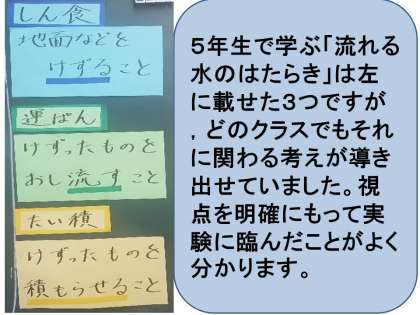 しん食
地面などを
けずること
運ぱん
けずったものを
おし流すこと
たい積
けずったものを
積もらせること
５年生で学ぶ「流れる
水のはたらき」は左
に載せた３つですが
，どのクラスでもそれ
に関わる考えが導き
出せていました。視
点を明確にもって実
験に臨んだことがよく
分かります。